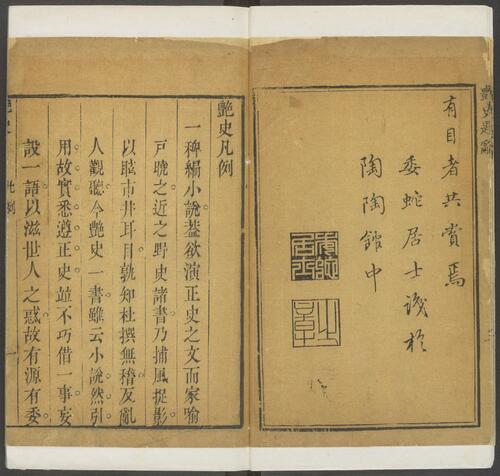 艷史題辭
有目者共賞焉
委蛇居士識於
陶陶館中
艷史凡例
一稗編小說葢欲演正史之文而家喻
戶曉之近之野史諸書乃捕風捉影
以眩市井耳目孰知杜撰無稽反亂
人觀聽今艷史一書雖云小說然引
用故實悉遵正史並不巧借一事妄
設一語以滋世人之惑故有源有委
艷史
凡例
一